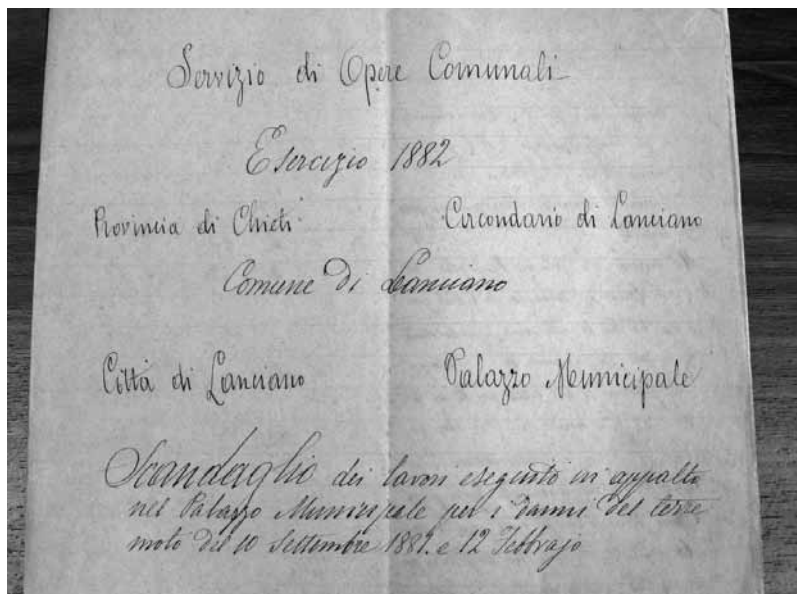 Servizio di Opere Comunali
Esercizio 1882
Provincia di Chieti Circondario di Lanciano
Comune di Lanciano
Città di Lanciano Palazzo Municipale
Scandaglio dei lavori eseguito in appalto
nel Palazzo Municipale per i danni del terre
moto del 10 Settembre 1881. e 12 Febbrajo